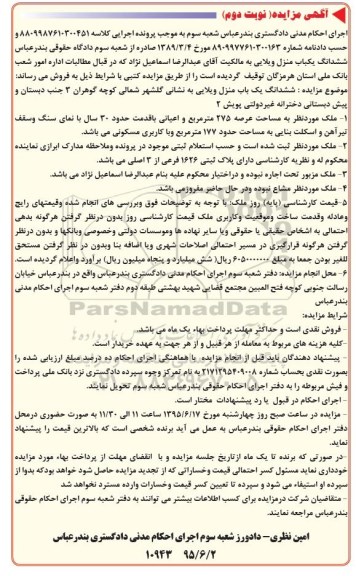 آگهی مزایده( نوبت دوم)
اجرای احکام مدنی دادگستری بندرعباس شعبه سوم به موجب پرونده اجرایی کلاسه ۳۰۰۴۵۱-۸۸۰۹۹۸۷۶۱ و
حسب دادنامه شماره ۳۰۰۱۶۳-۸۹۰۹۹۷۷۶۱ مورخ ۱۳۸۹/۳/۴ صادره از شعبه سوم دادگاه حقوقی بندرعباس
ششدانگ یکباب منزل ویلایی به مالکیت آقای عبدالرضا اسماعیل نژاد که در قبال مطالبات اداره امور شعب
بانک ملی استان هرمزگان توقیف گردیده است را از طریق مزایده کتبی با شرایط ذیل به فروش می رساند:
موضوع مزایده : ششدانگ یک باب منزل ویلایی به نشانی گلشهر شمالی کوچه گوهران ۳ جنب دبستان و
پیش دبستانی دخترانه غیردولتی پویش ۲
۱- ملک موردنظر به مساحت عرصه ۲۷۵ مترمربع و اعیانی باقدمت حدود ۳۰ سال با نمای سنگ وسقف
تیرآهن و اسکلت بنایی به مساحت حدود ۱۷۷ مترمربع وبا کاربری مسکونی می باشد.
۲- ملک موردنظر ثبت شده است و حسب استعلام ثبتی موجود در پرونده وملاحظه مدارک ابرازی نماینده
محکوم له و نظریه کارشناسی دارای پلاک ثبتی ۱۶۲۶ فرعی از ۳ اصلی می باشد.
۳- ملک مزبور تحت اجاره نبوده و دراختیار محکوم علیه بنام عبدالرضا اسماعیل نژاد می باشد.
۴- ملک موردنظر مشاع نبوده ودر حال حاضر مفروزمی باشد.
۵-قیمت کارشناسی (پایه) روز ملک: با توجه به توضیحات فوق وبررسی های انجام شده وقیمتهای رایج
وعادله وقدمت ساخت وموقعیت وکاربری ملک قیمت کارشناسی روز بدون درنظر گرفتن هرگونه بدهی
احتمالی به اشخاص حقیقی یا حقوقی ویا سایر نهاده ها وموسسات دولتی وخصوصی وبانکها و بدون درنظر
گرفتن هرگونه قرارگیری در مسیر احتمالی اصلاحات شهری ویا اضافه بنا وبدون در نظر گرفتن مستحق
للغیر بودن جمعا به مبلغ ۶۰۵۰۰۰۰۰۰۰ ریال( شش میلیارد و پنجاه میلیون ریال) برآورد واعلام گردیده است.
۶- محل انجام مزایده: دفتر شعبه سوم اجرای احکام مدنی دادگستری بندرعباس واقع در بندرعباس خیابان
رسالت جنوبی کوچه فتح المبین مجتمع قضایی شهید بهشتی طبقه دوم دفتر شعبه سوم اجرای احکام مدنی
بندرعباس
شرایط مزایده:
- فروش نقدی است و حداکثر مهلت پرداخت بهاء یک ماه می باشد.
-کلیه هزینه های مربوط به معامله از هر قبیل و از هر جهت به عهده خریدار است.
- پیشنهاد دهندگان باید قبل از انجام مزایده با هماهنگی اجرای احکام ده درصد مبلغ ارزیابی شده را
بصورت نقدی بحساب شماره ۲۱۷۱۲۹۵۴۰۹۰۰۸ به نام تمرکز وجوه سپرده دادگستری نزد بانک ملی پرداخت
و فیش مربوطه را به دفتر اجرای احکام حقوقی بندرعباس شعبه سوم تحویل نمایند.
- اجرای احکام در قبول یا رد پیشنهادات مختار است.
- مزایده در ساعت صبح روز چهارشنبه مورخ ۱۳۹۵/۶/۱۷ ساعت ۱۱ الی ۱۱/۳۰ به صورت حضوری درمحل
دفتر اجرای احکام حقوقی بندرعباس به عمل می آید برنده شخصی است که بالاترین قیمت را پیشنهاد
نماید.
-در صورتی که برنده تا یک ماه ازتاریخ جلسه مزایده و با انقضای مهلت از پرداخت بهاء مورد مزایده
خودداری نماید مسئول کسر احتمالی قیمت وخساراتی که از تجدید مزایده حاصل شود خواهد بودکه بدوا از
سپرده او استیفاء می شود و سپرده تا تعیین کسر قیمت وخسارات وارده مسترد نخواهد شد
- متقاضیان شرکت درمزایده برای کسب اطلاعات بیشتر می توانند به دفتر شعبه سوم اجرای احکام حقوقی
بندرعباس مراجعه نمایند.
امین نظری- دادورز شعبه سوم اجرای احکام مدنی دادگستری بندرعباس
۹۵/۶/۲ ۱۰۹۴۳
ParsNamadData